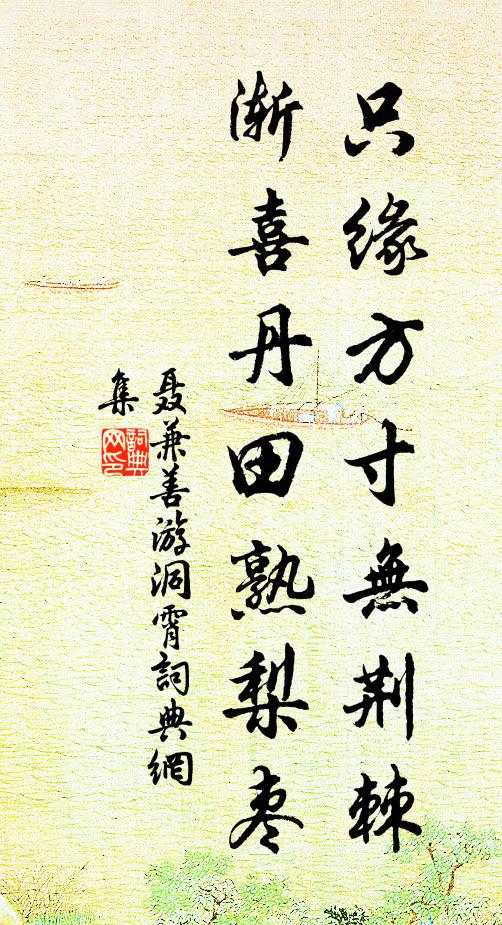 只缘方寸無荆棘
渐喜丹田熟梨枣
聂兼善游洞霄詞典網
集
詞典網印